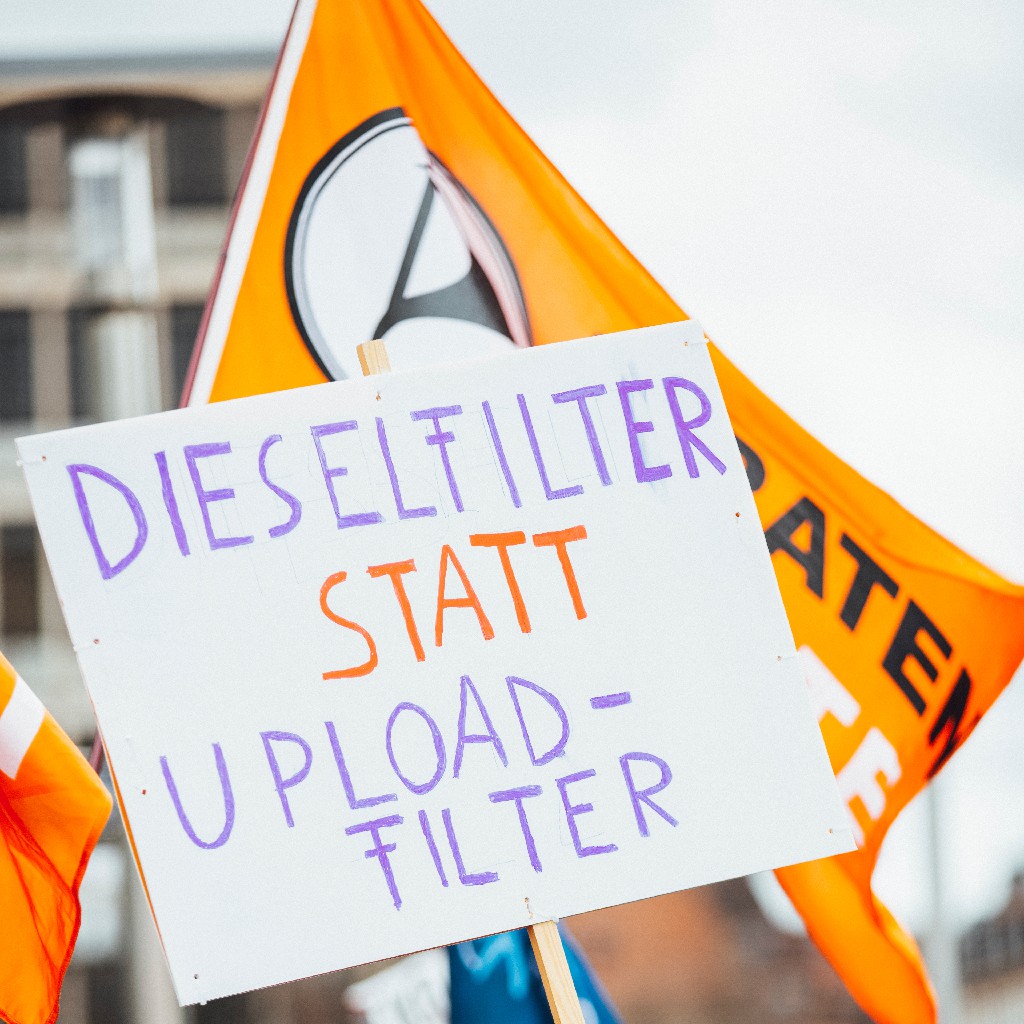 DIESELFILTER
STATT
UPLOAD-
FILTER
ATEN